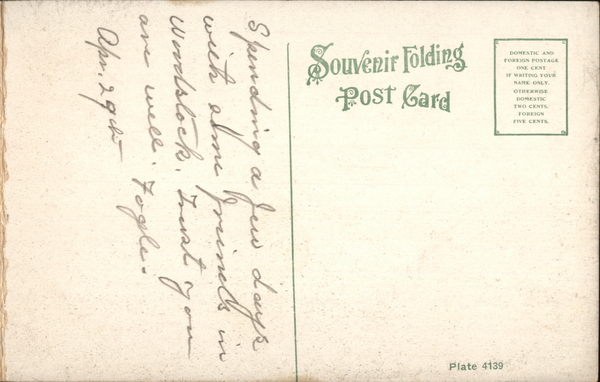 Spending a few days
with some friends in
Woodstock. Trust you
are well. Fogle.
Apr. 29th
Souvenir Folding
Post Card
DOMESTIC AND
FOREIGN POSTAGE
ONE CENT
IF WRITING YOUR
NAME ONLY.
OTHERWISE
DOMESTIC
TWO CENTS,
FOREIGN
FIVE CENTS.
Plate 4139